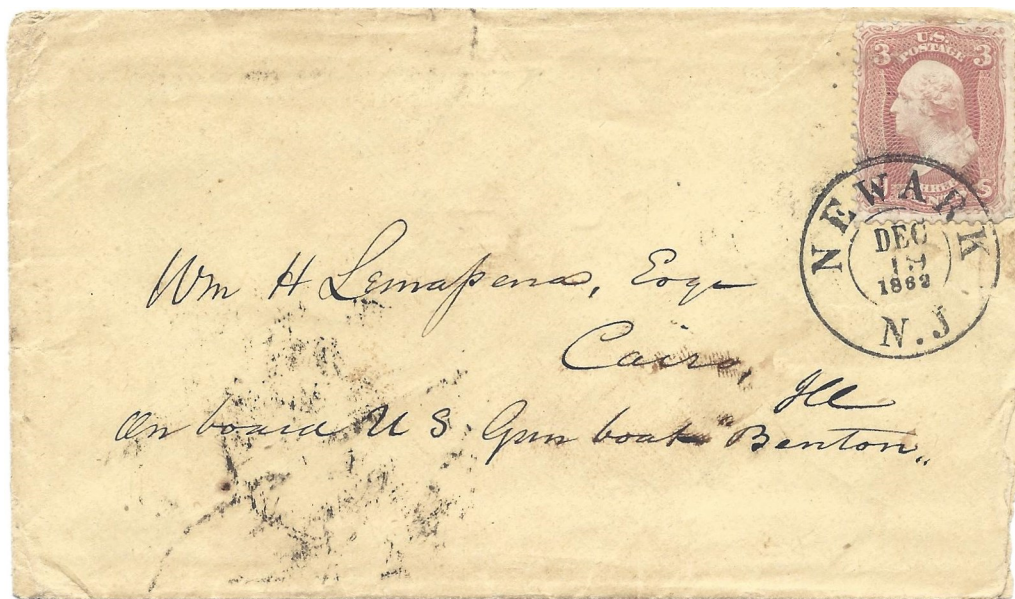 3 U.S. 3
POSTAGE
NEWARK
DEC
19
1862
N.J
Wm H Lemassena, Esqr
Cairo,
Ill
On board U S. Gun boat "Benton"